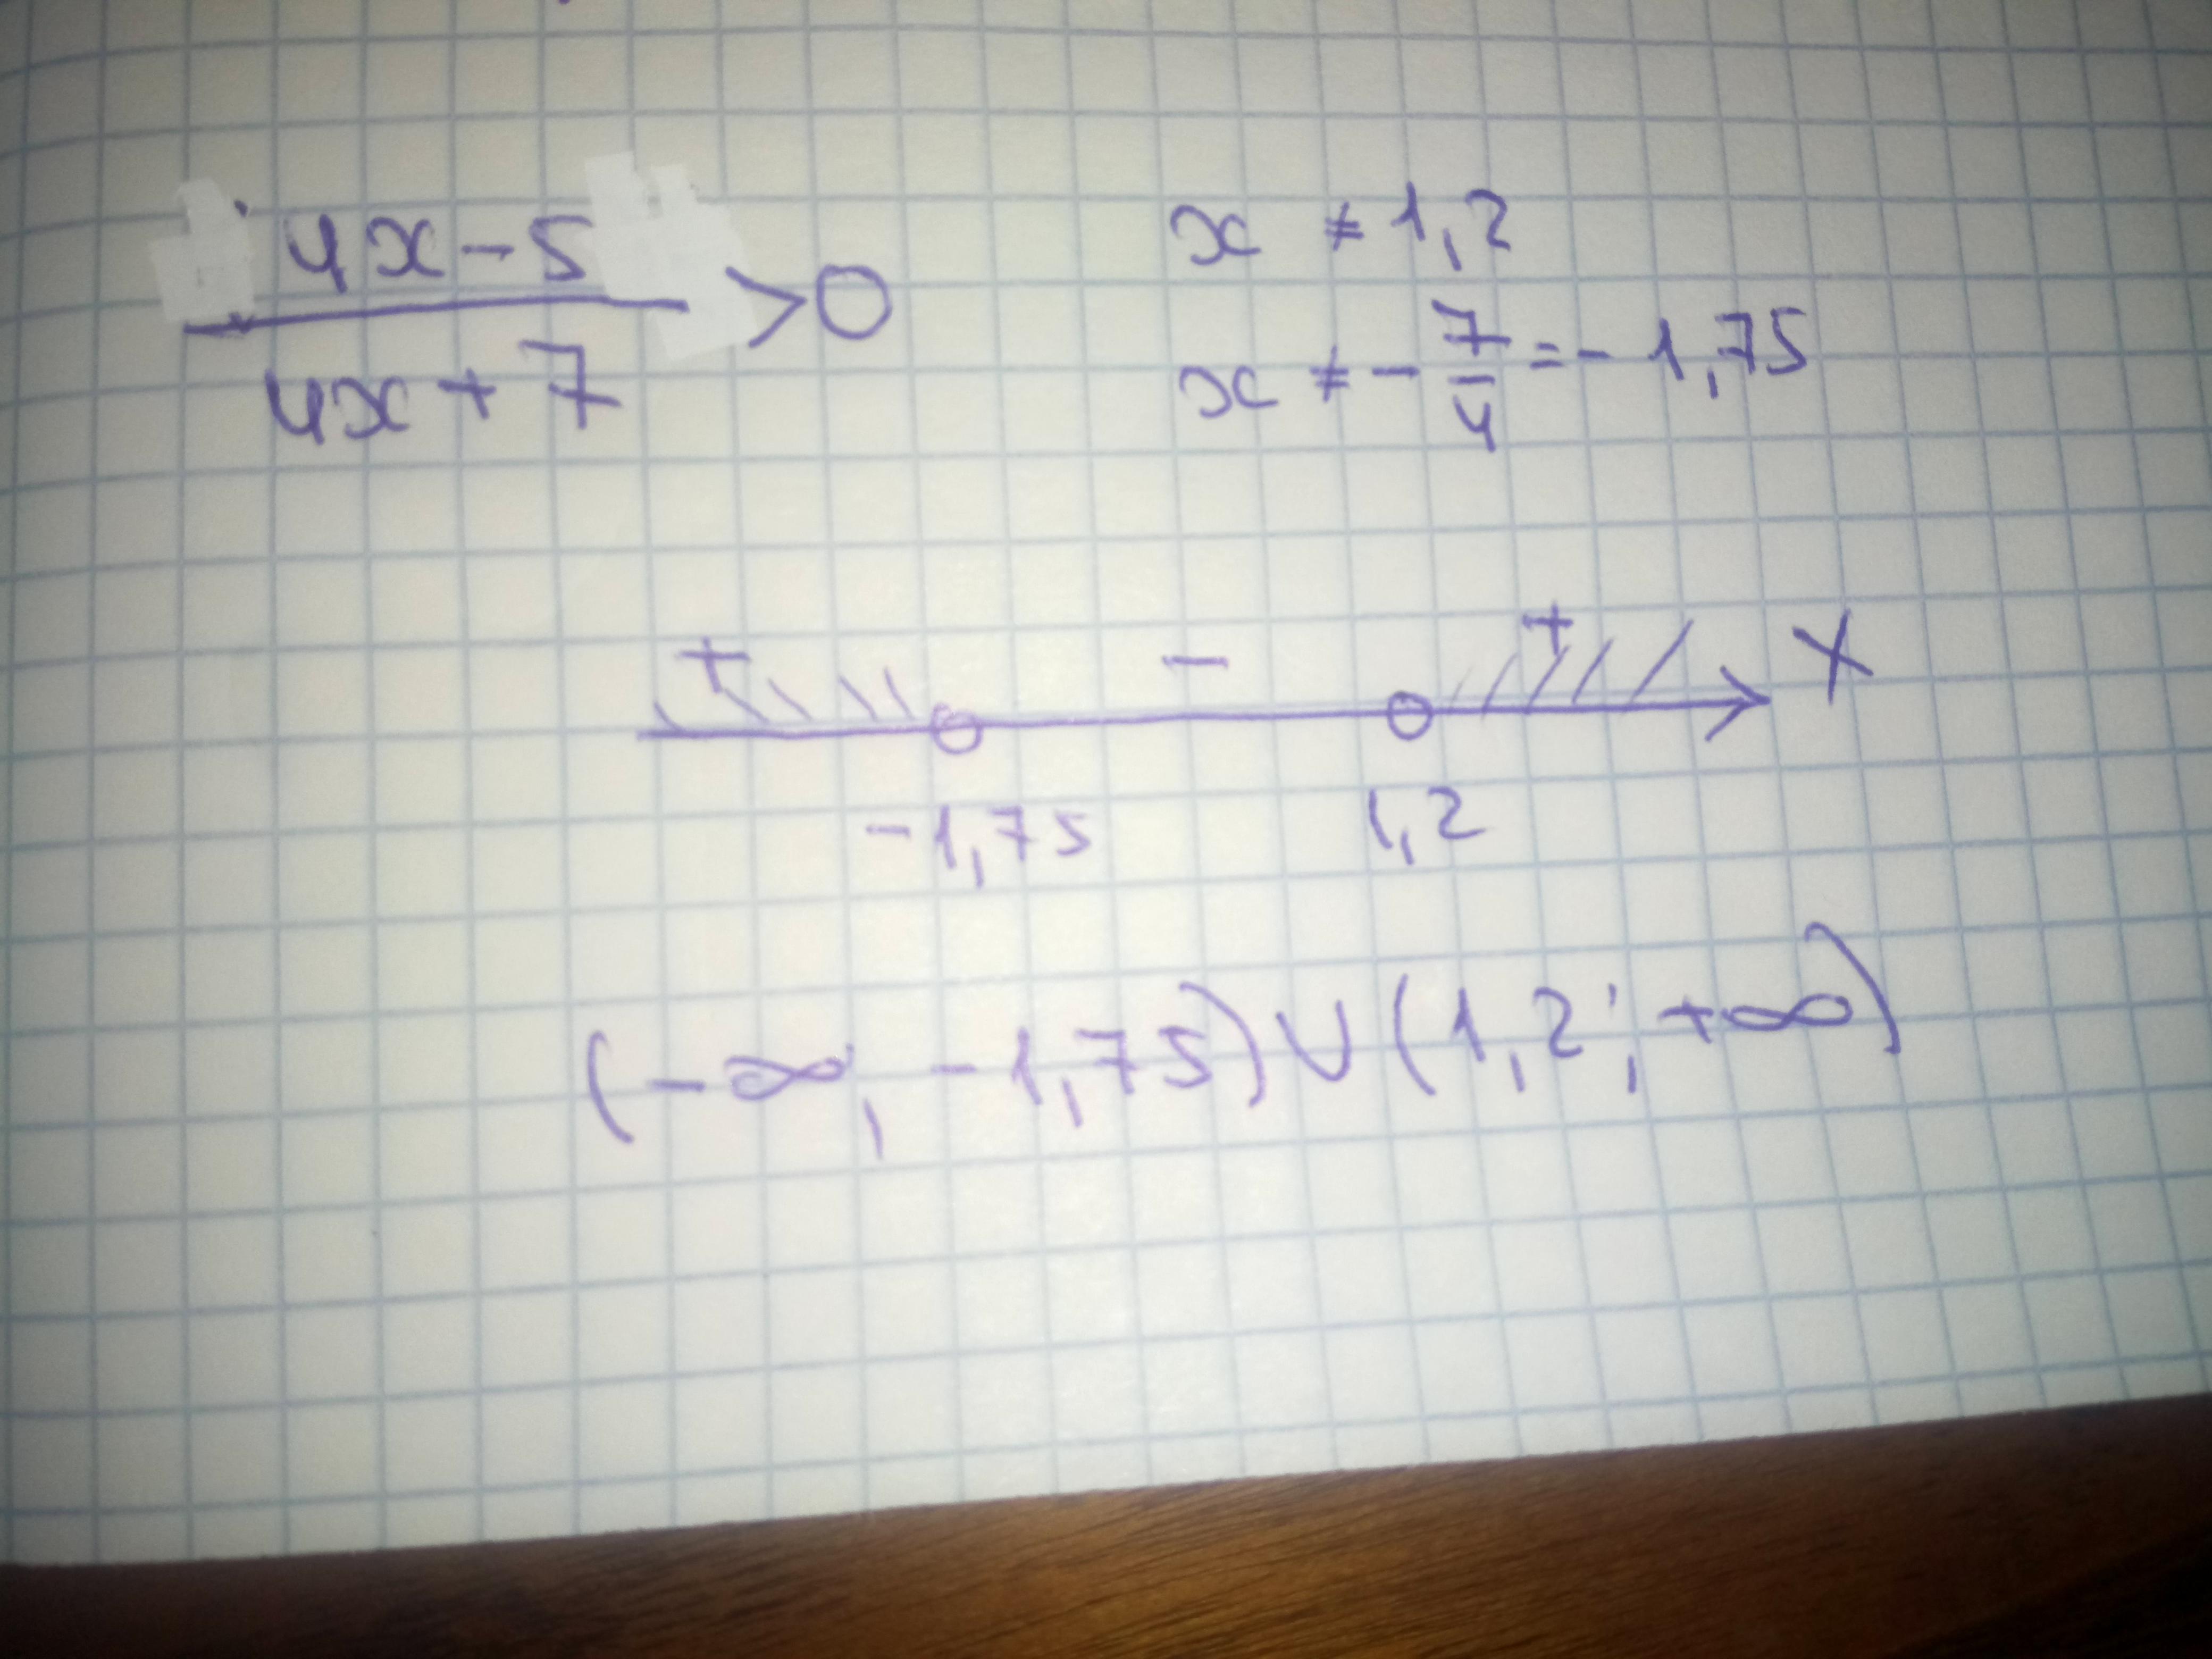 4x-5
——— >0
4x+7
x ≠ 1,2
x ≠ - 7/4 = - 1,75
+ - + X
-1,75 1,2
(-∞, -1,75) ∪ (1,2; +∞)